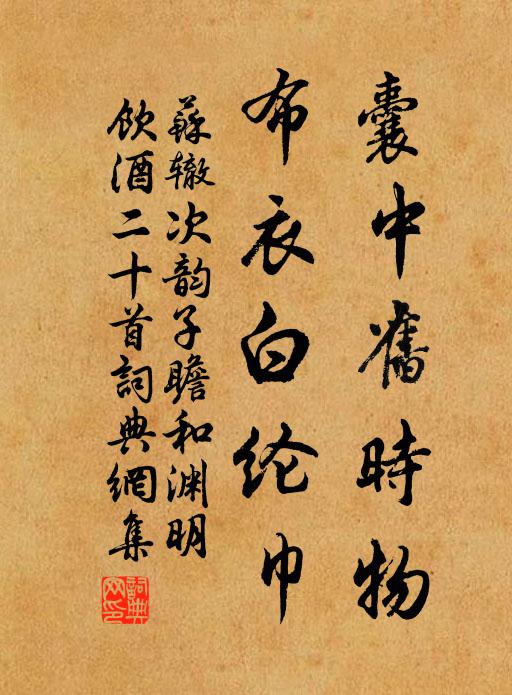 囊中舊時物
布衣白纶巾
蘇辙次韵子瞻和渊明
飲酒二十首詞典網集
詞典
网印